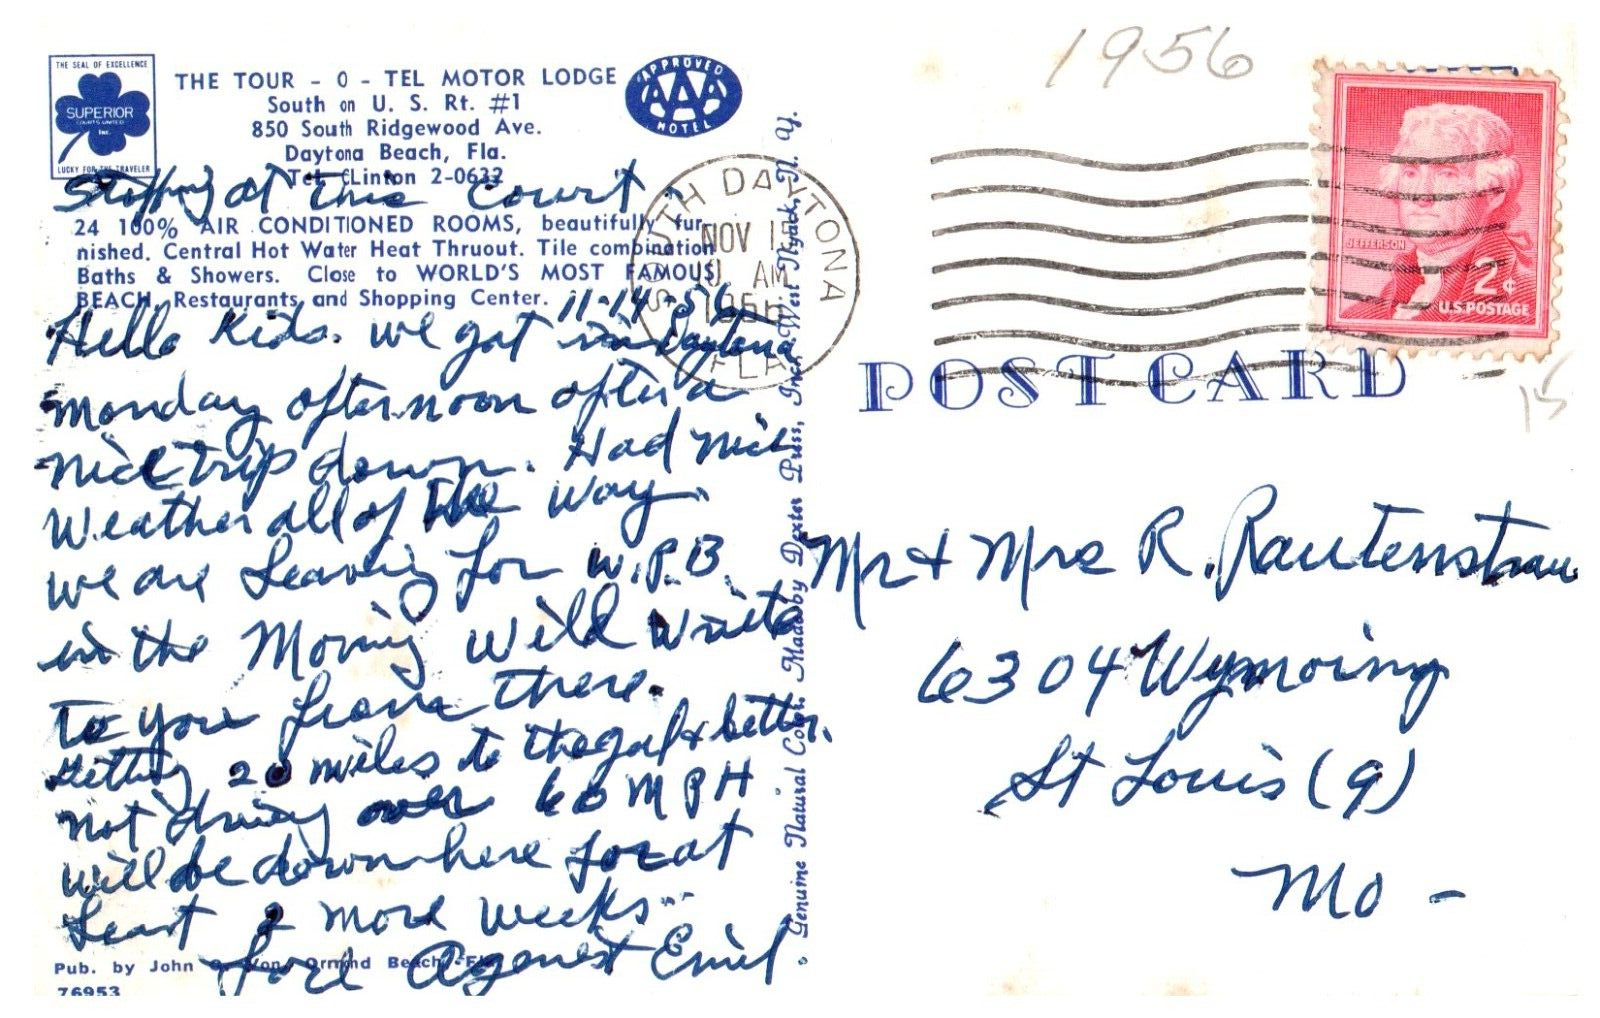 THE SEAL OF EXCELLENCE
SUPERIOR
COURTS UNITED
INC.
LUCKY FOR THE TRAVELER
THE TOUR - O - TEL MOTOR LODGE
South on U. S. Rt. #1
850 South Ridgewood Ave.
Daytona Beach, Fla.
Tel. CLinton 2-0632
APPROVED
AAA
MOTEL
Stopping at this Court
24 100% AIR CONDITIONED ROOMS, beautifully fur-
nished. Central Hot Water Heat Thruout. Tile combination
Baths & Showers. Close to WORLD'S MOST FAMOUS
BEACH, Restaurants and Shopping Center.
11-14-56
Hello Kids. we got in Daytona
Monday afternoon after a
nice trip down. Had nice
Weather all of the way.
we are Leaving for W.P.B
in the Morning Will write
to you from there.
Getting 20 miles to the gal & better.
not driving over 60 MPH
will be down here for at
Least 2 more weeks.
Emil
Pub. by John Ormond Beach, Fla.
76953
Genuine Natural Color Made by Dexter Press, Inc., West Nyack, N. Y.
1956
SOUTH DAYTONA
NOV 15
AM
1956
FLA
JEFFERSON
2¢
U.S. POSTAGE
POST CARD
15
Mr & Mrs R. Rautenstrau
6304 Wymoing
St Louis (9)
Mo -